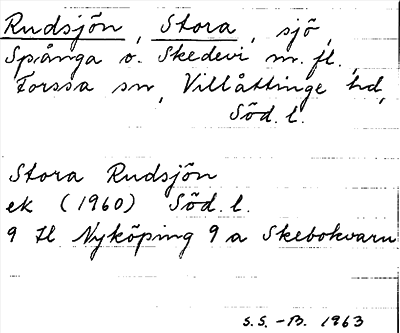 Rudsjön, Stora, sjö,
Spånga o. Skedevi m. fl.,
Forssa sn, Villåttinge hd,
Söd. l.
Stora Rudsjön
ek (1960) Söd. l.
9 H Nyköping 9 a Skebokvarn
S.S. -B. 1963